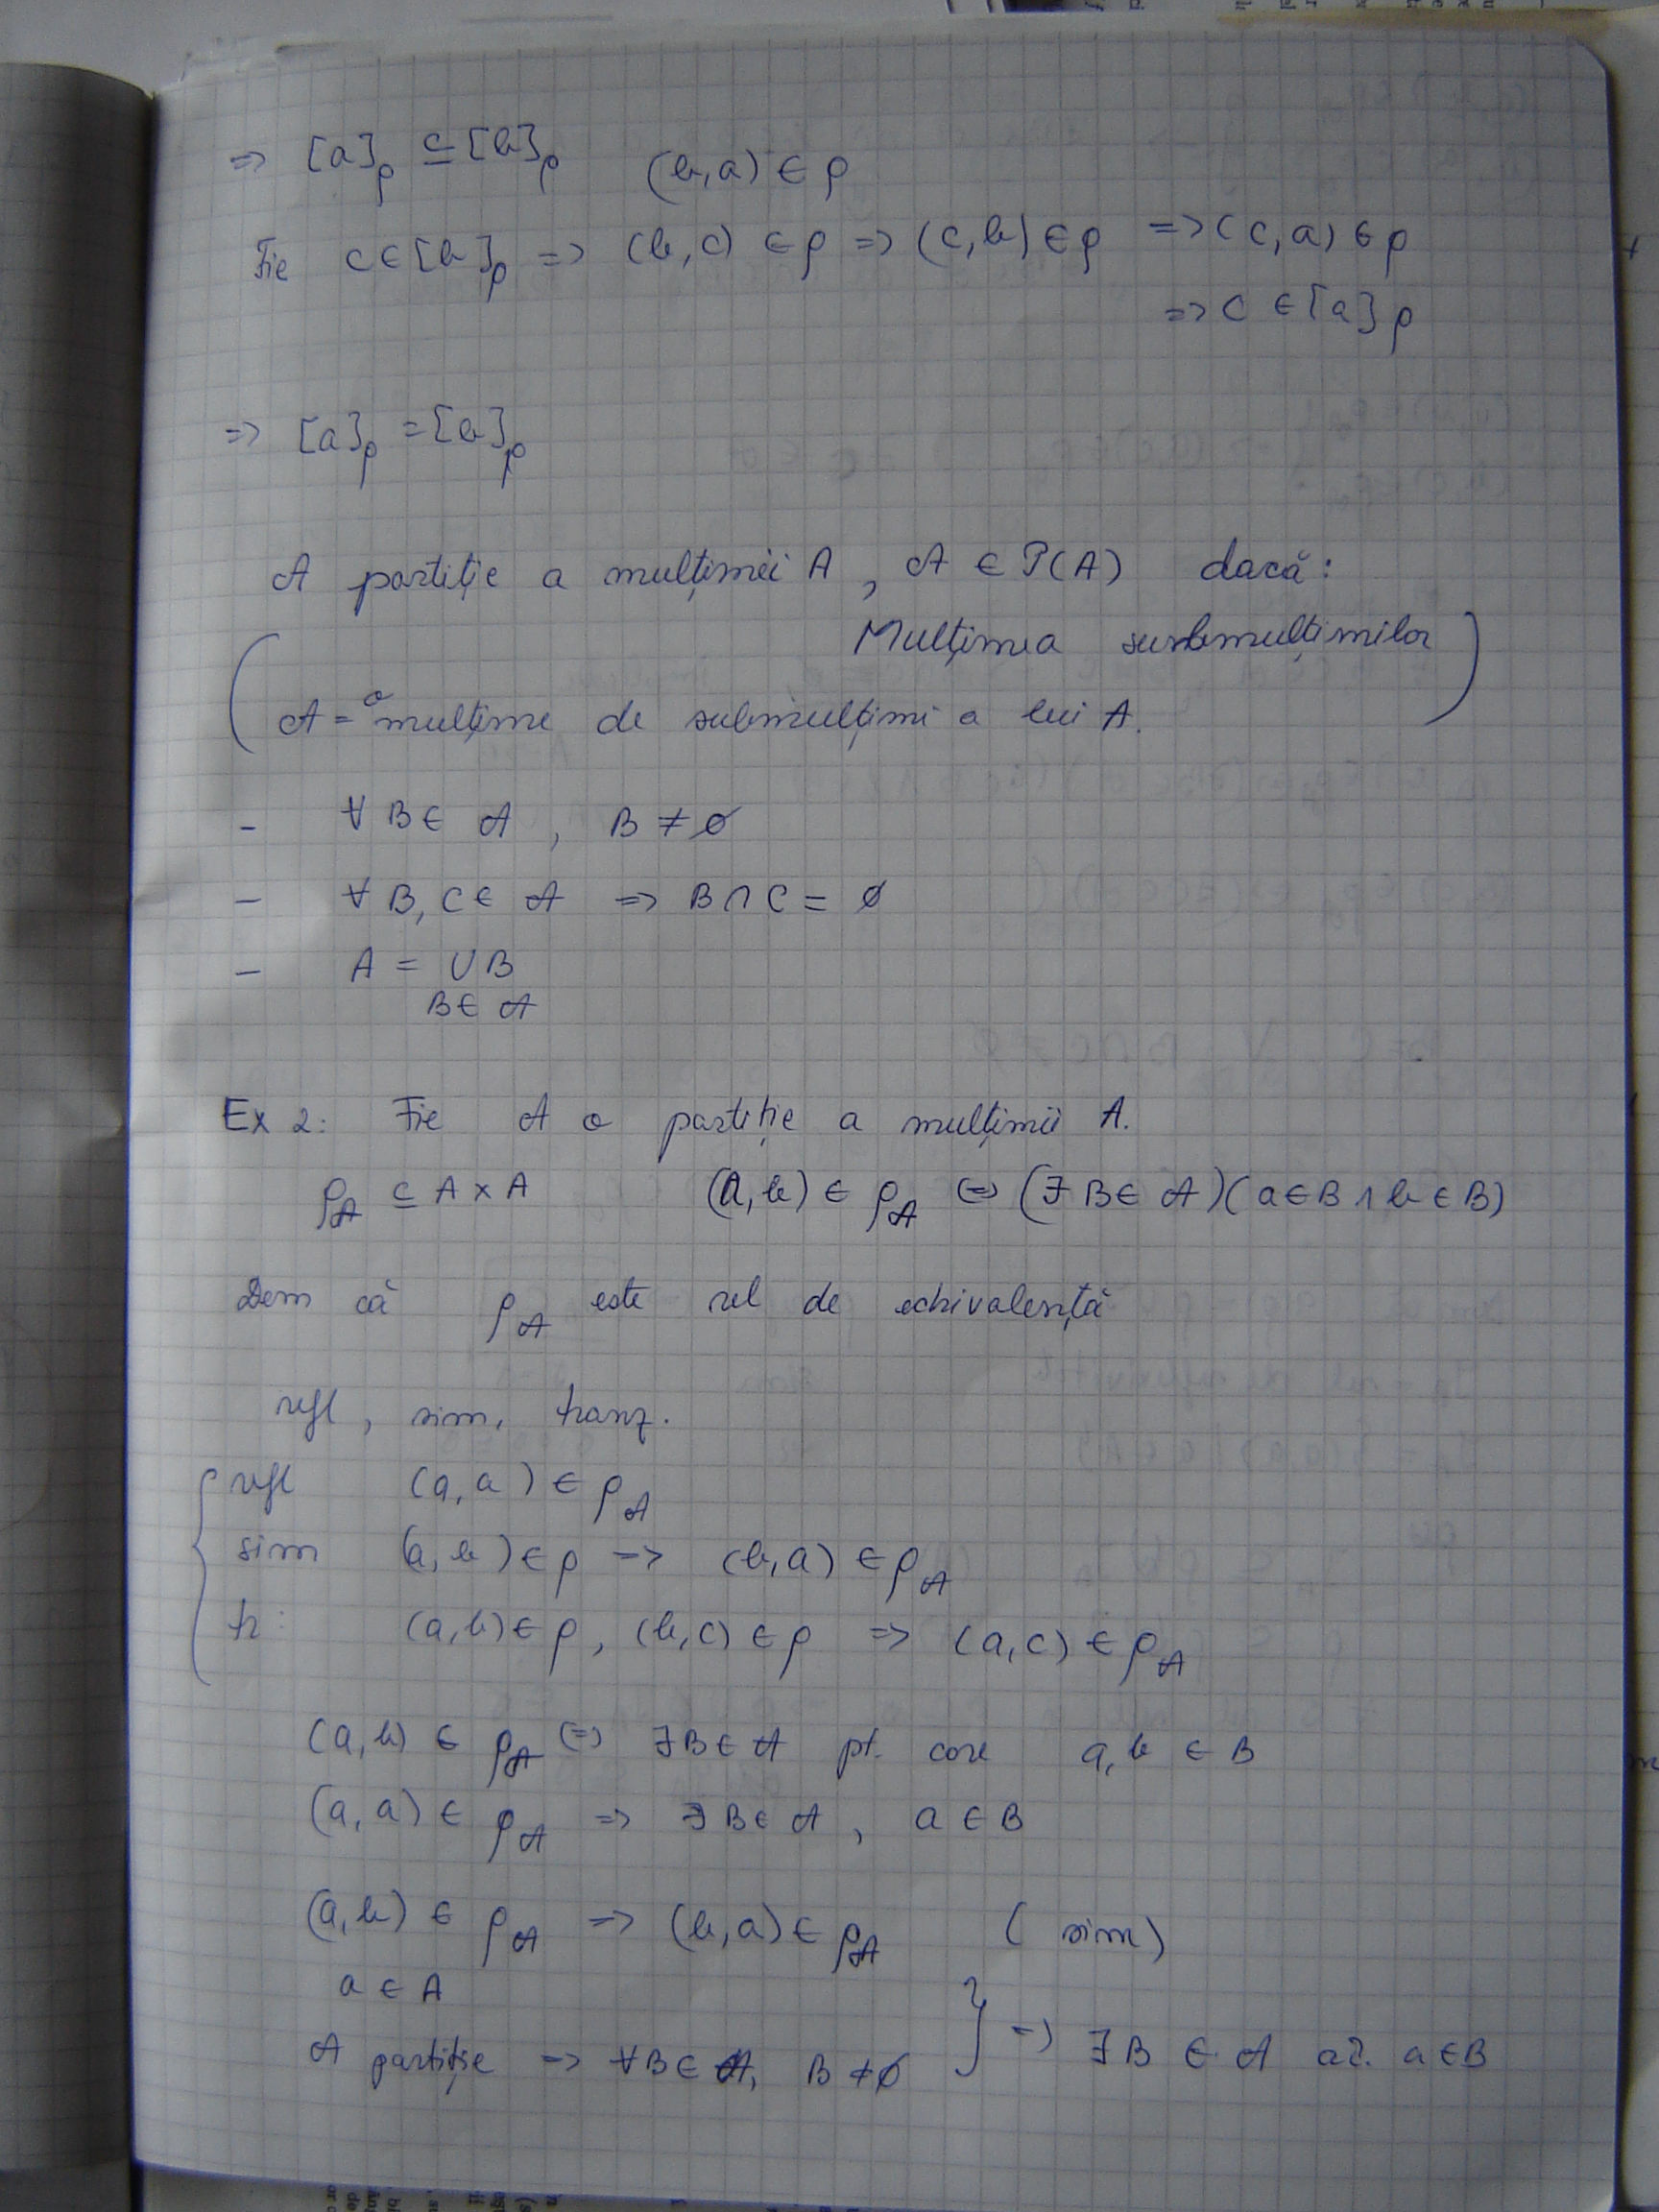 => [a]ρ ⊆ [b]ρ (b,a) ∈ ρ
Fie c∈[b]ρ => (b,c) ∈ρ => (c,b)∈ρ => (c,a)∈ρ
=> c ∈[a]ρ
=> [a]ρ = [b]ρ
𝒜 partiție a mulțimii A, 𝒜 ∈ P(A) dacă:
Mulțimea submulțimilor
(𝒜 = o mulțime de submulțimi a lui A.)
- ∀ B∈ 𝒜, B ≠ ∅
- ∀ B, C∈ 𝒜 => B ∩ C = ∅
- A = ∪ B
B∈ 𝒜
Ex 2: Fie 𝒜 o partiție a mulțimii A.
ρ𝒜 ⊆ A × A (a,b) ∈ ρ𝒜 <=> (∃ B∈ 𝒜)(a∈B ∧ b∈B)
Dem că ρ𝒜 este rel de echivalență
refl, sim, tranz.
refl (a,a) ∈ ρ𝒜
sim (a,b) ∈ ρ => (b,a) ∈ρ𝒜
tr: (a,b)∈ ρ, (b,c) ∈ ρ => (a,c) ∈ ρ𝒜
(a,b) ∈ ρ𝒜 <=> ∃ B∈ 𝒜 pt. care a, b ∈ B
(a,a) ∈ ρ𝒜 => ∃ B∈ 𝒜, a ∈ B
(a,b) ∈ ρ𝒜 => (b,a) ∈ ρ𝒜 (sim)
a ∈ A
𝒜 partiție => ∀B∈ 𝒜, B ≠ ∅ } => ∃ B ∈ 𝒜 aî. a∈B